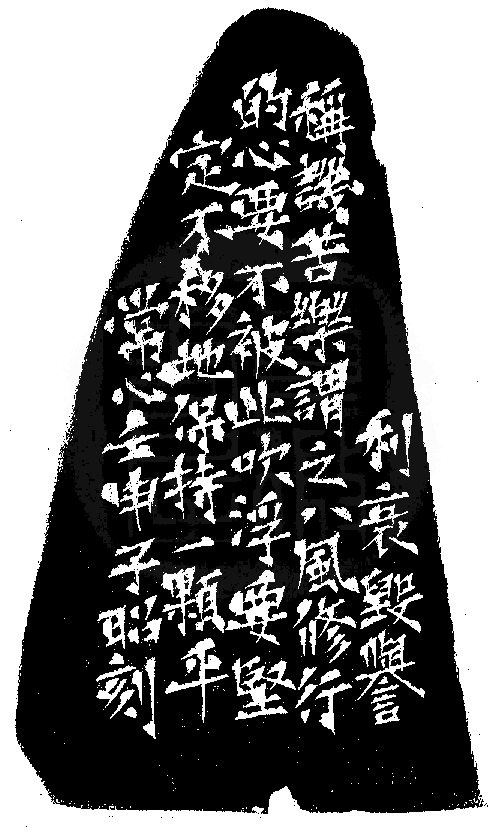 利衰毀譽
稱譏苦樂謂之八風修行
的心要不被此吹浮要堅
定不移地保持一顆平
常心壬申子昭刻